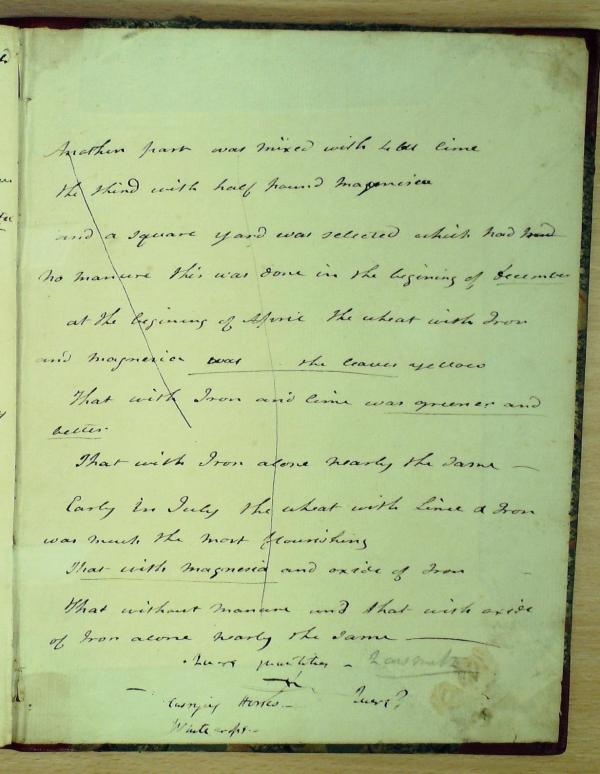 Another part was mixed with 4 lbs lime
the third with half pound Magnesia
and a square yard was selected which had had
no manure this was done in the begining of december
at the begining of April the wheat with Iron
and magnesia was the leaves yellow
That with Iron and lime was greener and
better
That with Iron alone nearly the same —
Early in July the wheat with Lime & Iron
was much the most flourishing
That with magnesia and oxide of Iron
That without manure and that with oxide
of Iron alone nearly the same —
quantities -
Carrying Horses - Quere?
White crops -